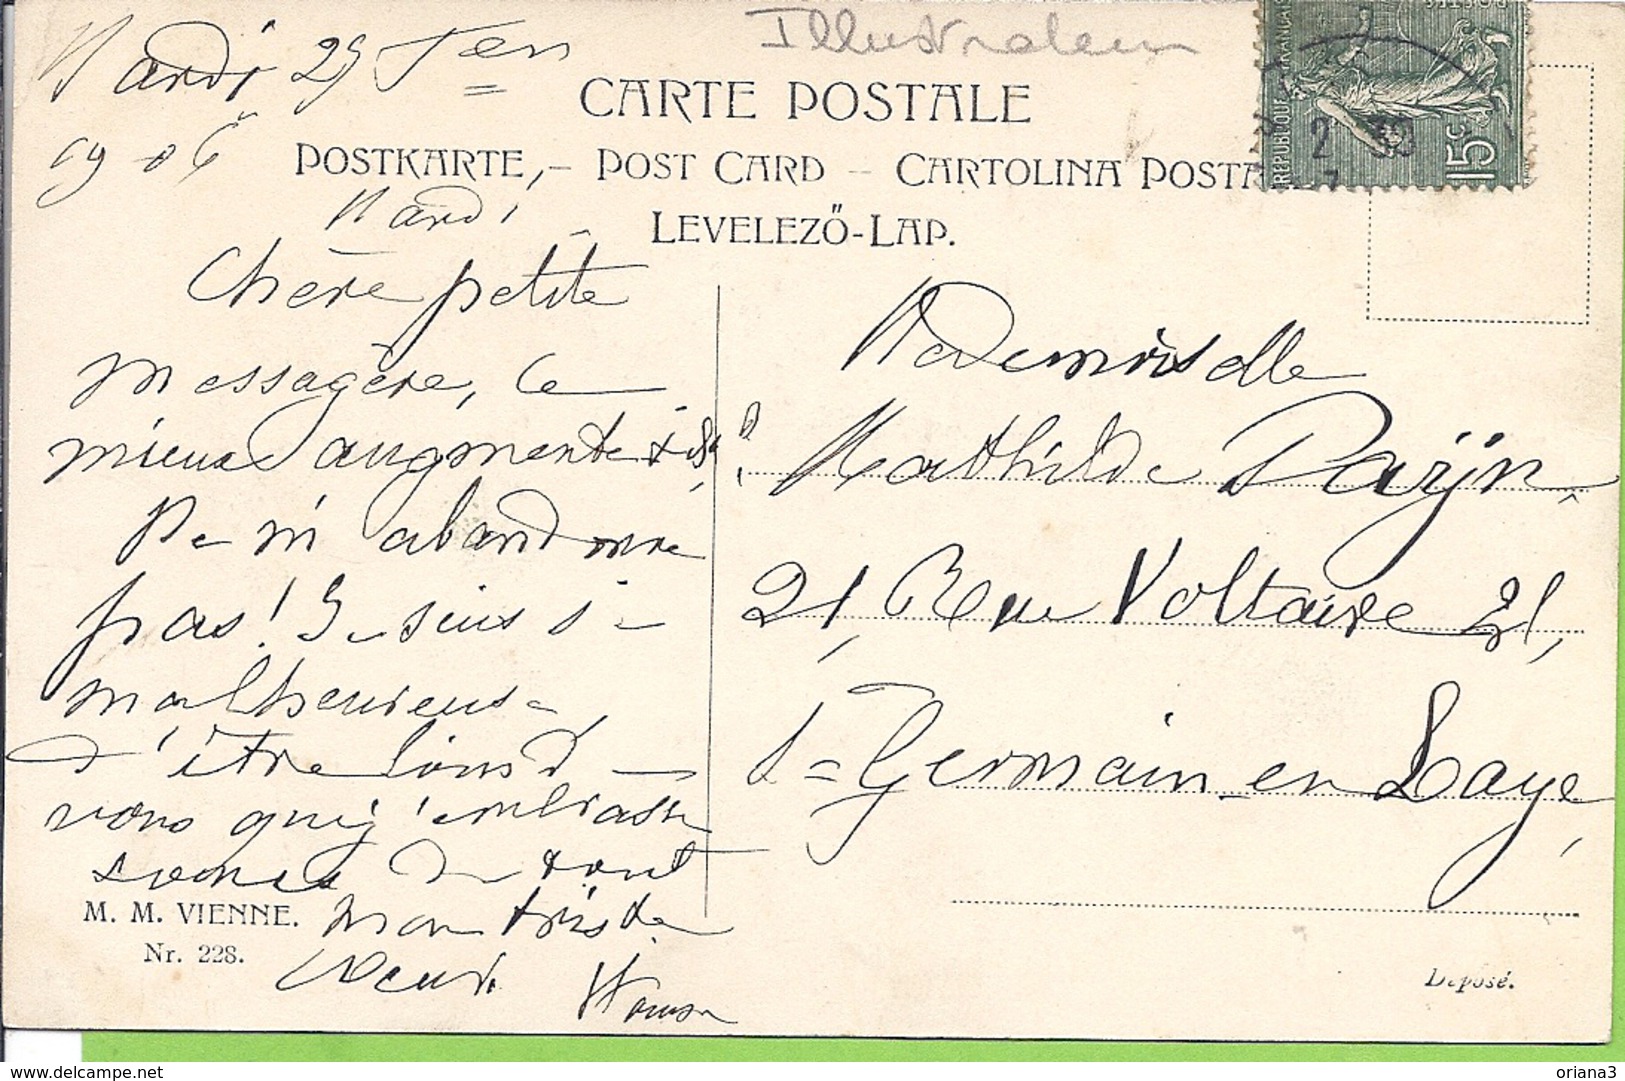 Mardi 25 Jen
1906
Illustrateur
CARTE POSTALE
POSTKARTE,- POST CARD - CARTOLINA POSTA
LEVELEZŐ-LAP.
RÉPUBLIQUE FRANÇAISE
POSTES
15c
2 30
Mardi
Chère petite
messagère, le
mieux augmente
Ne m'abandonne
pas! Je suis si
malheureuse
d'être loin d
vous que j'embrasse
de tout
mon triste
coeur.
Mademoiselle
Mathilde Darÿn
21, Rue Voltaire 21,
St = Germain-en Laye,
M. M. VIENNE.
Nr. 228.
Déposé.
oriana3
delcampe.net